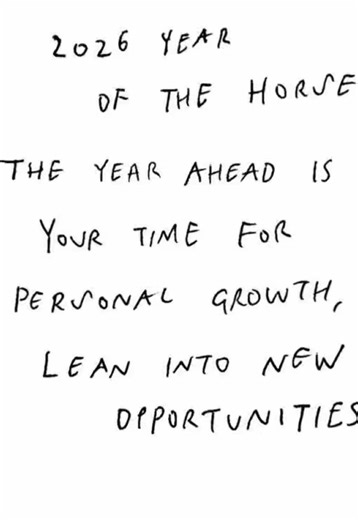 2026 YEAR
OF THE HORSE
THE YEAR AHEAD IS
YOUR TIME FOR
PERSONAL GROWTH,
LEAN INTO NEW
OPPORTUNITIES